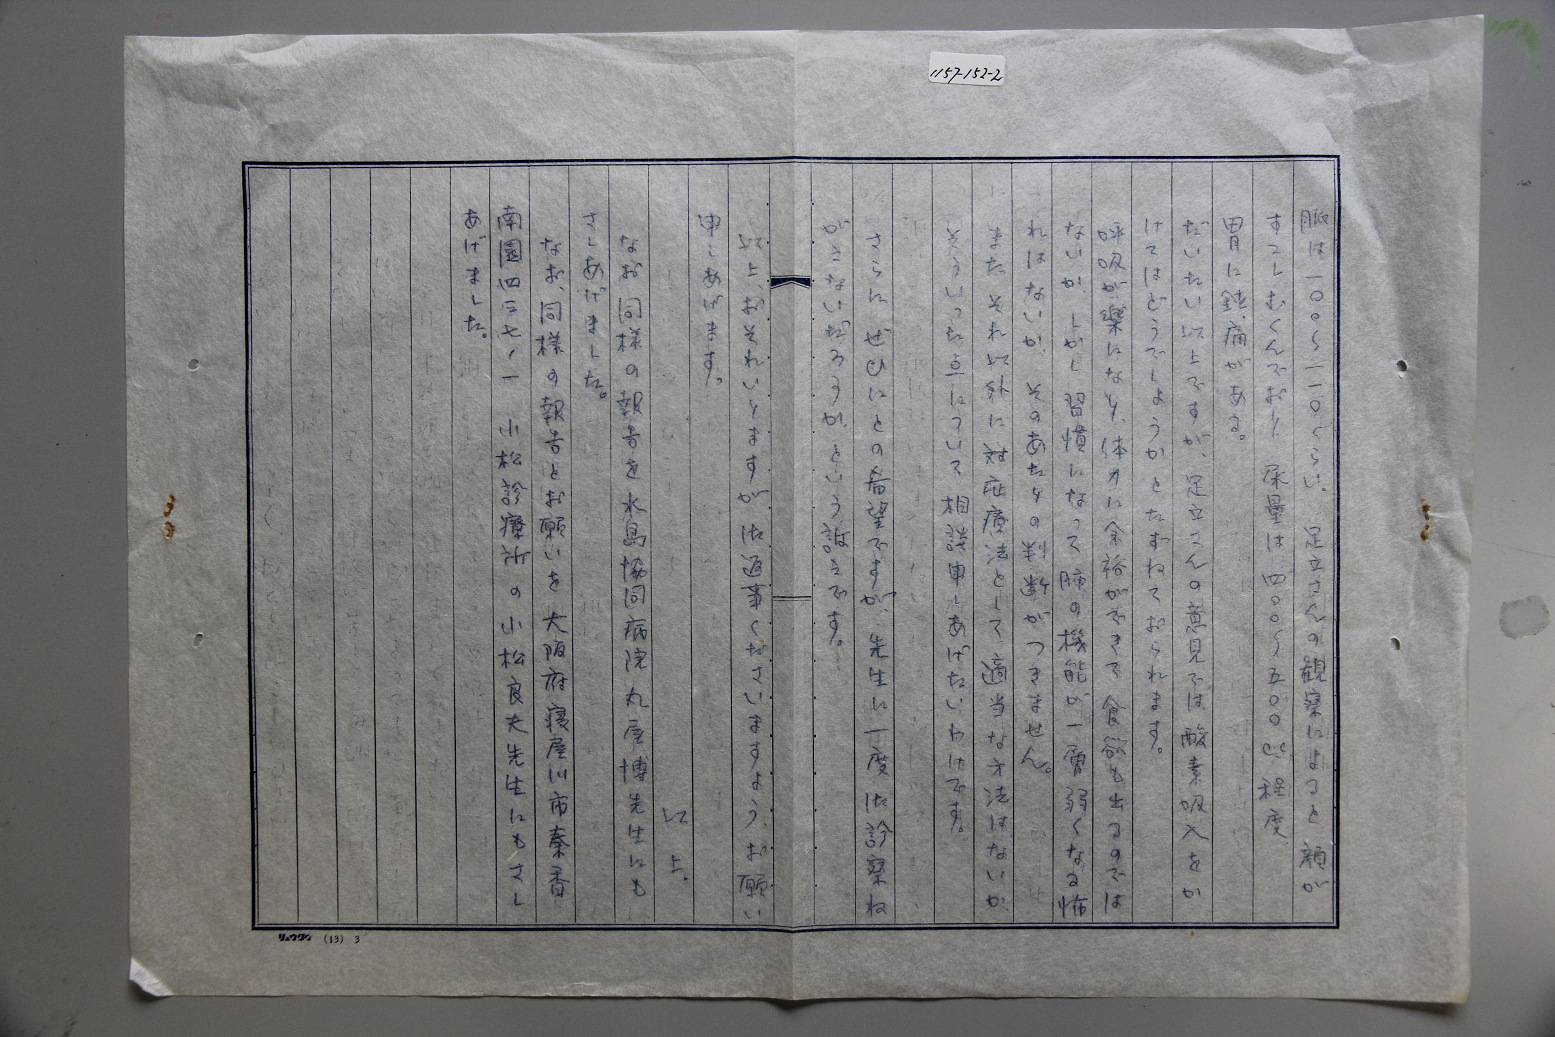 1157-152-2
脈は一〇〇〜一一〇くらい。足立さんの観察によると顔が
すこしむくんでおり、尿量は、四〇〇〜五〇〇cc程度、
胃に鈍痛がある。
だいたい以上ですが、足立さんの意見では酸素吸入をか
けてはどうでしようかとたずねておられます。
呼吸が楽になり、体力に余裕ができて食欲も出るのでは
ないか、しかし習慣になって肺の機能が一層弱くなる怖
れはないか、そのあたりの判断がつきません。
また、それ以外に対症療法として適当な方法はないか、
そういった点について相談申しあげたいわけです。
さらに、ぜひにとの希望ですが、先生に一度御診察ね
がえないだろうか、という話です。
以上、おそれいりますが御返事くださいますよう、お願い
申しあげます。
以上。
なお同様の報告を水島協同病院丸屋博先生にも
さしあげました。
なお、同様の報告とお願いを大阪府寝屋川市秦香
南園四三七ノ一 小松診療所の小松良夫先生にもさし
あげました。
リュウグウ (13) 3